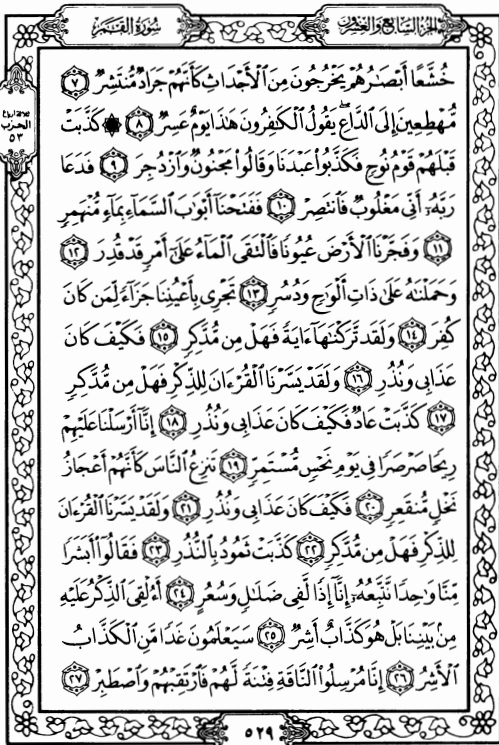 الجزء السابع والعشرون
سورة القمر
ثلاثة أرباع
الحزب
٥٣
خُشَّعًا أَبْصَٰرُهُمْ يَخْرُجُونَ مِنَ ٱلْأَجْدَاثِ كَأَنَّهُمْ جَرَادٌ مُّنتَشِرٌ ٧
مُّهْطِعِينَ إِلَى ٱلدَّاعِ ۖ يَقُولُ ٱلْكَٰفِرُونَ هَٰذَا يَوْمٌ عَسِرٌ ٨ ۞ كَذَّبَتْ
قَبْلَهُمْ قَوْمُ نُوحٍ فَكَذَّبُوا۟ عَبْدَنَا وَقَالُوا۟ مَجْنُونٌ وَٱزْدُجِرَ ٩ فَدَعَا
رَبَّهُۥٓ أَنِّى مَغْلُوبٌ فَٱنتَصِرْ ١٠ فَفَتَحْنَآ أَبْوَٰبَ ٱلسَّمَآءِ بِمَآءٍ مُّنْهَمِرٍ
١١ وَفَجَّرْنَا ٱلْأَرْضَ عُيُونًا فَٱلْتَقَى ٱلْمَآءُ عَلَىٰٓ أَمْرٍ قَدْ قُدِرَ ١٢
وَحَمَلْنَٰهُ عَلَىٰ ذَاتِ أَلْوَٰحٍ وَدُسُرٍ ١٣ تَجْرِى بِأَعْيُنِنَا جَزَآءً لِّمَن كَانَ
كُفِرَ ١٤ وَلَقَد تَّرَكْنَٰهَآ ءَايَةً فَهَلْ مِن مُّدَّكِرٍ ١٥ فَكَيْفَ كَانَ
عَذَابِى وَنُذُرِ ١٦ وَلَقَدْ يَسَّرْنَا ٱلْقُرْءَانَ لِلذِّكْرِ فَهَلْ مِن مُّدَّكِرٍ
١٧ كَذَّبَتْ عَادٌ فَكَيْفَ كَانَ عَذَابِى وَنُذُرِ ١٨ إِنَّآ أَرْسَلْنَا عَلَيْهِمْ
رِيحًا صَرْصَرًا فِى يَوْمِ نَحْسٍ مُّسْتَمِرٍّ ١٩ تَنزِعُ ٱلنَّاسَ كَأَنَّهُمْ أَعْجَازُ
نَخْلٍ مُّنقَعِرٍ ٢٠ فَكَيْفَ كَانَ عَذَابِى وَنُذُرِ ٢١ وَلَقَدْ يَسَّرْنَا ٱلْقُرْءَانَ
لِلذِّكْرِ فَهَلْ مِن مُّدَّكِرٍ ٢٢ كَذَّبَتْ ثَمُودُ بِٱلنُّذُرِ ٢٣ فَقَالُوٓا۟ أَبَشَرًا
مِّنَّا وَٰحِدًا نَّتَّبِعُهُۥٓ إِنَّآ إِذًا لَّفِى ضَلَٰلٍ وَسُعُرٍ ٢٤ أَءُلْقِىَ ٱلذِّكْرُ عَلَيْهِ
مِنۢ بَيْنِنَا بَلْ هُوَ كَذَّابٌ أَشِرٌ ٢٥ سَيَعْلَمُونَ غَدًا مَّنِ ٱلْكَذَّابُ
ٱلْأَشِرُ ٢٦ إِنَّا مُرْسِلُوا۟ ٱلنَّاقَةِ فِتْنَةً لَّهُمْ فَٱرْتَقِبْهُمْ وَٱصْطَبِرْ ٢٧
٥٢٩